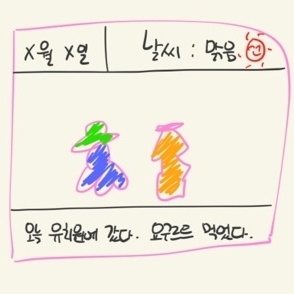 X월 X일 날씨 : 맑음
오늘 유치원에 갔다. 요구르트 먹었다.